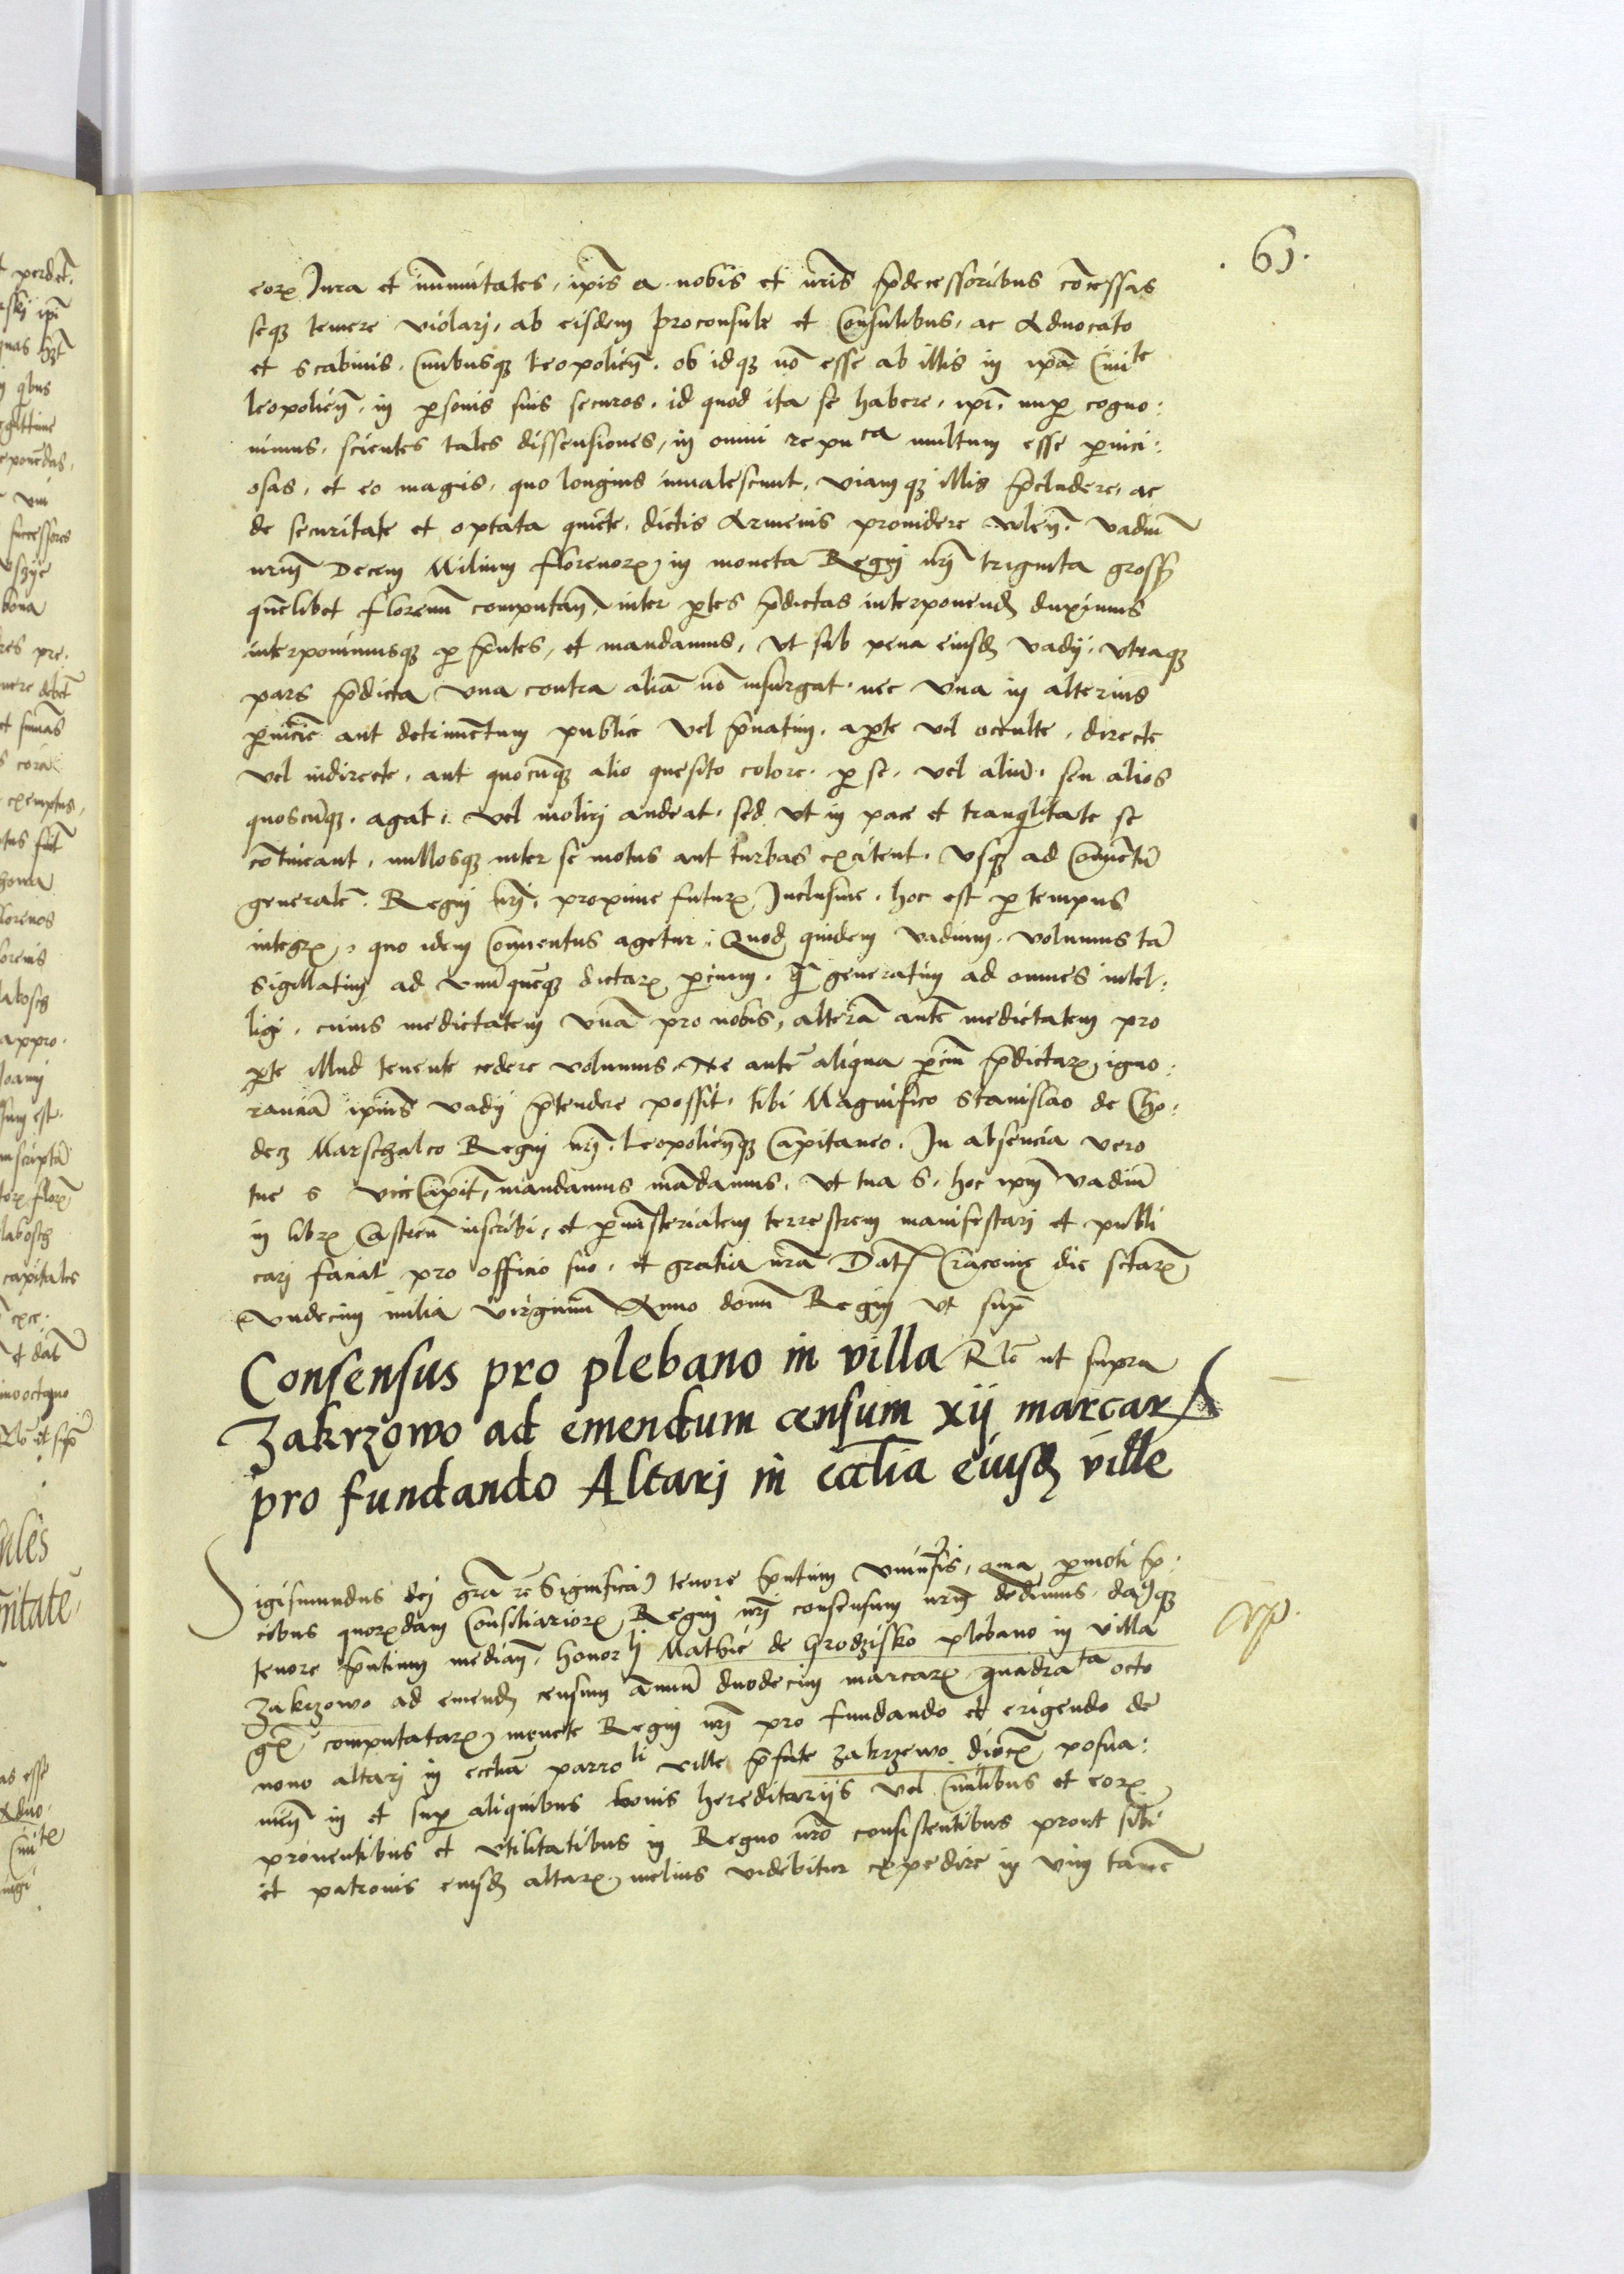 61.
eorꝝ Jura et im̄unitates, ip̄is a nobis et nr̄is p̄decessoribus cōcessas
seqꝫ temere violarj, ab eisdem proconsule et Consulibus, ac Aduocato
et scabinis, Ciuibusqꝫ leopolien̄. ob idqꝫ nō esse ab illis in ip̄a Ciuite
leopolien̄, in ꝑsonis suis securos. id quod ita se habere, ip̄i nuꝑ cogno:
uimus. scientes tales dissensiones, in omni repuca multum esse ꝑnici:
osas, et eo magis, quo longius inualescunt, viamqꝫ illis p̄cludere, ac
de securitate et optata quiete, dictis Armenis prouidere volen̄. vadiū
nr̄m Decem Milium florenorꝝ, in moneta Regni nr̄j triginta gross̄
quēlibet florenū computan̄, inter ꝑtes p̄dictas interponend̄ duximus
interponimusqꝫ ꝑ p̄ntes, et mandamus, vt sub pena eiusd̄ vadij, vtraqꝫ
pars p̄dicta vna contra aliā nō insurgat. nec vna in alterius
ꝑniciē aut detrimentum publice vel p̄uatim, aꝑte vel occulte, directe
vel indirecte, aut quocūqꝫ alio quesito colore, ꝑ se, vel aliū, seu alios
quoscūqꝫ, agat: vel molirj audeat, sed vt in pace et tranqlitate se
cōtineant, nullosqꝫ inter se motus aut turbas excitent. Vsqꝫ ad Conuētū
generalē Regni nr̄j, proxime futurꝝ Inclusiue, hoc est ꝑ tempus
integrꝝ, quo idem Conuentus agetur: Quod quidem vadium, volumus tā
sigillatim ad vnūquēqꝫ dictarꝝ ꝑcium, q̄ generatim ad omnes intel:
ligi, cuius medietatem vnā pro nobis, alterā autē medietatem pro
ꝑte illud tenente cedere volumus. Ne autē aliqua ꝑciū p̄dictarꝝ, igno:
ranciā ip̄ius vadij p̄tendere possit, tibi Magnifico Stanislao de Cho:
decz Marschalco Regni nr̄j, Leopolien̄qꝫ Capitaneo. In absencia vero
tue S vice Capit̄, mandamus mādamus, vt tua S. hoc ip̄m vadiū
in librꝝ Castren̄ inscribi, et ꝑ ministerialem terrestrem manifestarj et publi
carj faciat pro officio suo, et gratia nr̄a Dat̄ Cracouie die sctarꝝ
vndecim milia virginū Anno domī Regni vt sup̄
Consensus pro plebano in villa Rlō ut supra
Zakrzowo ad emendum censum xij marcarꝝ
pro fundando Altarj in ecclīa eiusd̄ ville
Sigismundus dej gr̄a rē Significā tenore p̄ntium vniuīsis, qma ꝑmoti p̄
cibus quorꝝdam Consiliariorꝝ Regni nr̄j consensum nr̄m dedimus, dāqꝫ
tenore p̄ntium median̄, honorli Mathie de Grodzisko plebano in villa
Zakrzowo ad emend̄ censum annuū duodecim marcarꝝ quadrata octo
gꝝ computatarꝝ, monete Regni nr̄j pro fundando et erigendo de
nouo altarj in eccliā parroli ville p̄fate Zakrzewo diocꝝ posna:
nien̄ in et suꝑ aliquibus bonis hereditarijs vel Ciuilibus et eorꝝ
prouentibus et vtilitatibus in Regno nr̄o consistentibus prout sibi
et patronis eiusd̄ altarꝝ, melius videbitur expedire in vim tamē